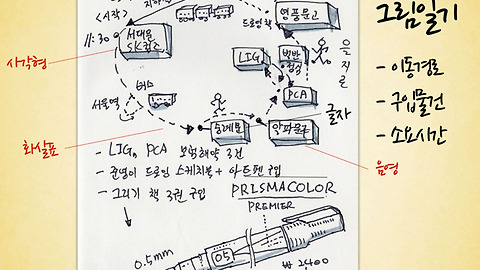 그림일기
- 이동경로
- 구입물건
- 소요시간
<시작>
11:30
서대문
SK건소
지하철
드로잉책
영풍문고
을지로
LIG
PCA
버스
서울역
숭례문
알파문구
글자
사각형
화살표
음영
- LIG, PCA 보험해약 3건
- 준영이 드로잉 스케치북 + 아트펜 구입
- 그리기 책 3권 구입
PRISMACOLOR
PREMIER
0.5mm
05
₩ 2400